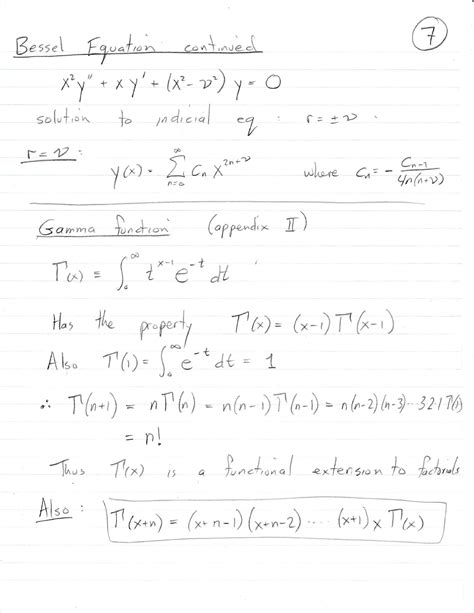 Bessel Equation continued
7
x²y'' + x y' + (x² - ν²) y = 0
solution to indicial eq : r = ± ν .
r = ν : y(x) = ∑_{n=0}^{∞} Cₙ x^{2n+ν} where Cₙ = - Cₙ₋₁ / 4n(n+ν)
Gamma function (appendix II)
Γ(x) ≡ ∫₀^∞ t^{x-1} e^{-t} dt
Has the property Γ(x) = (x-1) Γ(x-1)
Also Γ(1) = ∫₀^∞ e^{-t} dt = 1
∴ Γ(n+1) = nΓ(n) = n(n-1)Γ(n-1) = n(n-2)(n-3)···3·2·1 Γ(1)
= n!
Thus Γ(x) is a functional extension to factorials
Also : Γ(x+n) = (x+n-1)(x+n-2) ···· (x+1) x Γ(x)